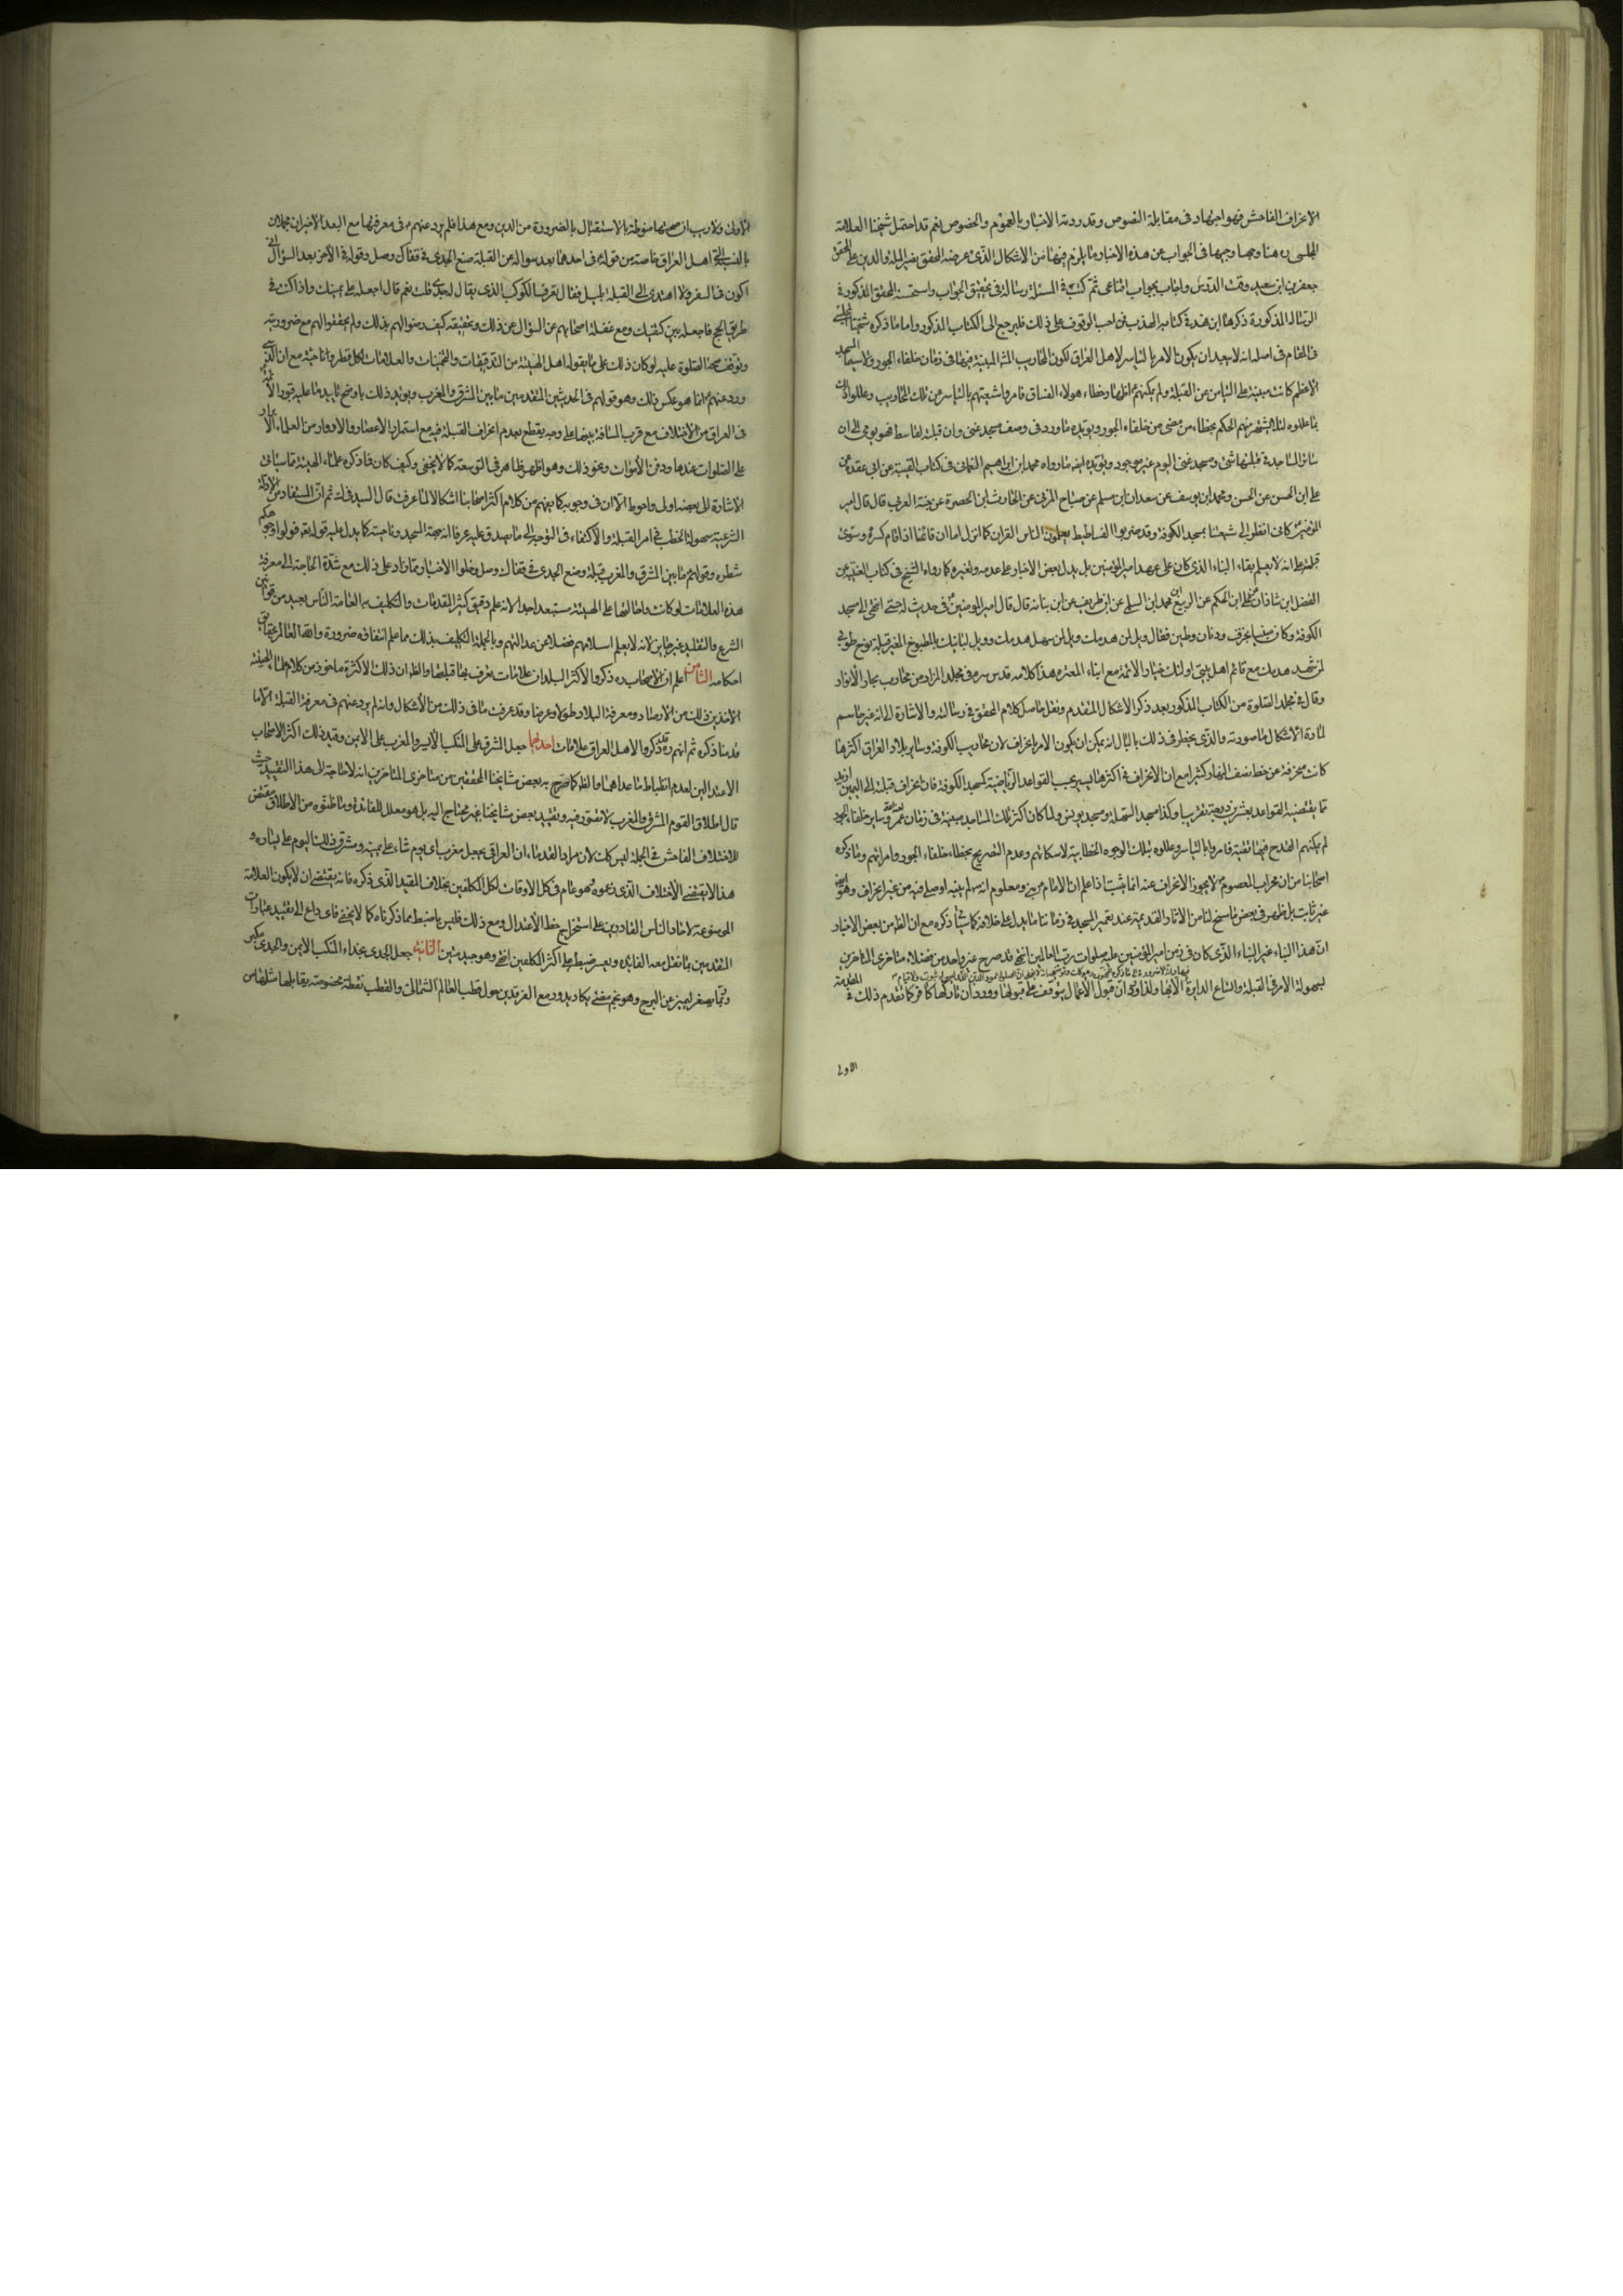 الانحراف الفاحش فهو اجتهاد فى مقابلة النصوص وقد ردته الاخبار بالعموم والخصوص نعم قد احتمل شيخنا العلامة
المجلسى ره هنا وجها وجيها فى الجواب عن هذه الاخبار وما يلزم فيها من الاشكال الذى عرضه المحقق نصير الملة والدين على المحقق
جعفر بن سعيد وقت الدرس واجاب بجواب اقناعى ثم كتب فى المسئلة رسالة فى تحقيق الجواب واستحسنه المحقق المذكور فى
الرسالة المذكورة ذكرها ابن فهد فى كتابه المهذب فمن احب الوقوف على ذلك فليرجع الى الكتاب المذكور واما ما ذكره شيخنا المجلسى
فى المقام فى اصله انه لا يبعد ان يكون الامر بالتياسر لاهل العراق لكون المحاريب المشهورة المبنية فيها فى زمان خلفاء الجور ولا سيما المسجد
الاعظم كانت مبنية على التيامن عن القبلة ولم يمكنهم اظهار خطاء هؤلاء الفساق فامروا شيعتهم بالتياسر عن تلك المحاريب وعللوا ذلك
بما عللوه لئلا يشتهر منهم الحكم بخطاء من مضى من خلفاء الجور ويؤيده ما ورد فى وصف مسجد غنى وان قبلته لقاسطة فهو يومى الى ان
سائر المساجد فى قبلتها شئ ومسجد غنى اليوم غير موجود ويؤيده ايضا ما رواه محمد ابن ابراهيم النعمانى فى كتاب الغيبة عن ابن عقدة عن
على ابن الحسن عن الحسن ومحمد ابن يوسف عن سعدان ابن مسلم عن صباح المزنى عن الحارث ابن الحصيرة عن حبة العرنى قال قال امير
المؤمنين كانى انظر الى شيعتنا بمسجد الكوفة وقد ضربوا الفساطيط يعلمون الناس القران كما انزل اما ان قائمنا اذا قام كسره وسوى
قبلته على انه لا يعلم بقاء البناء الذى كان على عهد امير المؤمنين بل يدل بعض الاخبار على هدمه وتغييره كما رواه الشيخ فى كتاب الغيبة عن
الفضل ابن شاذان عن على ابن الحكم عن الربيع ابن محمد ابن المسلى عن ابن طريف عن ابن نباته قال قال امير المؤمنين فى حديث له حتى انتهى الى مسجد
الكوفة وكان مبنيا بخزف ودنان وطين فقال ويل لمن هدمك وويل لمن سهل هدمك وويل لبانيك بالمطبوخ المغير قبلة نوح طوبى
لمن شهد هدمك مع قائم اهل بيتى اولئك خيار الامة مع ابرار العترة هذا كلامه قدس سره فى مجلد المزار من كتاب بحار الانوار
وقال فى مجلد الصلوة من الكتاب المذكور بعد ذكر الاشكال المتقدم ونقل حاصل كلام المحقق فى رسالته والاشارة الى انه غير حاسم
لمادة الاشكال ما صورته والذى يخطر فى ذلك بالبال انه يمكن ان يكون الامر بانحراف لان محاريب الكوفة وساير بلاد العراق اكثرها
كانت منحرفة عن خط نصف النهار كثيرا مع ان الانحراف فى اكثرها يسير بحسب القواعد الرياضية كمسجد الكوفة فان انحراف قبلته الى اليمين ازيد
مما يقتضيه القواعد بعشرين درجة تقريبا وكذا مسجد السهلة ومسجد يونس ولما كان اكثر تلك المساجد مبنية فى زمان عمر وساير خلفاء الجور
لم يمكنهم القدح فيها تقية فامروا بالتياسر وعللوه بتلك الوجوه الخطابية لاسكاتهم وعدم التصريح بخطاء خلفاء الجور وامرائهم وما ذكره
اصحابنا من ان محراب المعصوم لا يجوز الانحراف عنه انما يثبت اذا علم ان الامام بناه ومعلوم انه لم يبنه او صلى فيه من غير انحراف وهو ايضا
غير ثابت بل ظهر فى بعض ما سنح لنا من الاثار القديمة عند تعمير المسجد فى زماننا ما يدل على خلافه كما سياتى ذكره مع ان الظاهر من بعض الاخبار
ان هذا البناء غير البناء الذى كان فى زمن امير المؤمنين عليه صلوات رب العالمين انتهى قد صرح غير واحد من فضلاء متاخرى المتاخرين
بسهولة الامر فى القبلة واتساع الدايرة لانها ولذا وان قبول الاعمال يتوقف على قبولها وورد ان تاركها كافر كما تقدم ذلك فى المقدمة
الاولى
الاولى ولا ريب ان صحتها منوطة بالاستقبال بالضرورة من الدين ومع هذا فلم يرد عنهم فى معرفتها مع البعد الا خبران مجملان
بالنسبة الى اهل العراق خاصة من قوله فى احدهما بعد سؤاله عن القبلة ضع الجدى فى قفاك وصل وقوله فى الاخر بعد السؤال انى
اكون فى السفر ولا اهتدى الى القبلة بالليل فقال تعرف الكوكب الذى يقال له جدى قلت نعم قال اجعله على يمينك واذا كنت فى
طريق الحج فاجعله بين كتفيك ومع غفلة اصحابهم عن السؤال عن ذلك وتحقيقه كيف رضوا لهم بذلك ولم يحققوا لهم مع ضروريته
وتوقف صحة الصلوة عليه لو كان ذلك على ما يقوله اهل الهيئة من التدقيقات والتخمينات والعلامات لكل قطر وناحية مع ان الذى
ورد عنهم انما هو عكس ذلك وهو قولهم فى الحديثين المتقدمين ما بين المشرق والمغرب ويؤيد ذلك باوضح تاييد ما عليه قبور الائمة
فى العراق من الاختلاف مع قرب المسافة بينها على وجه يقطع بعدم انحراف القبلة فيه مع استمرار الاعصار والادوار من العلماء الابرار
على الصلوات عندها ودفن الاموات ونحو ذلك وهو اظهر ظاهر فى التوسعة كما لا يخفى وكيف كان فما ذكره علماء الهيئة مما سياتى
الاشارة الى بعضه اولى واحوط الا ان فى وجوبه كما يفهم من كلام اكثر اصحابنا اشكالا لما عرفت قال السيد فى ك ثم ان المستفاد من الادلة
الشرعية سهولة الخطب فى امر القبلة والاكتفاء فى التوجه الى ما يصدق عليه عرفا انه جهة المسجد وناحيته كما يدل عليه قوله تعالى فولوا وجوهكم
شطره وقولهم ما بين المشرق والمغرب قبلة وضع الجدى فى قفاك وصل وخلو الاخبار مما زاد على ذلك مع شدة الحاجة الى معرفة
هذه العلامات لو كانت واحالتها على الهيئة مستبعد جدا لانه علم دقيق كثير المقدمات والتكليف به لعامة الناس بعيد من قوانين
الشرع والتقليد غير جايز لانه لا يعلم اسلامهم فضلا عن عدالتهم وبالجملة التكليف بذلك مما علم انتفاؤه ضرورة والله العالم بحقايق
احكامه الثامن اعلم ان الاصحاب ره ذكروا لاكثر البلدان علامات تعرف بها قبلتها والظ ان ذلك الاكثرية ماخوذ من كلام علماء الهيئة
الاخذين ذلك من الارصاد ومعرفة البلاد طولا وعرضا وقد عرفت ما فى ذلك من الاشكال وانه لم يرد عنهم فى معرفة القبلة الا ما
قدمنا ذكره ثم انهم ره ذكروا لاهل العراق علامات احدها جعل المشرق على المنكب الايسر والمغرب على الايمن وقيد ذلك اكثر الاصحاب
الاعتدالين لعدم انضباط ما عداهما والظ كما صرح به بعض مشايخنا المحققين من متاخرى المتاخرين انه لا حاجة الى هذا التقييد حيث
قال اطلاق القوم المشرق والمغرب لا قصور فيه وتقييد بعض مشايخنا غير محتاج اليه بل هو معلل للفائدة وما ظنوه من الاطلاق مقتض
للاختلاف الفاحش فى الجملة ليس كذلك لان مراد القدماء ان العراقى يجعل مغرب اى يوم شاء على يمينه ومشرق ذلك اليوم على يساره و
هذا لا يقتضى الاختلاف الذى زعموه وهو عام فى كل الاوقات لكل المكلفين بخلاف المقيد الذى ذكره فانه يقتضى ان لا يكون العلامة
الموضوعة لاحاد الناس القادرين على استخراج خط الاعتدال ومع ذلك فليس باضبط مما ذكرناه كما لا يخفى فاى داع الى تقييد عبارات
المتقدمين بما تقل معه الفائدة ويعسر ضبط على اكثر المكلفين انتهى وهو جيد متين الثانية جعل الجدى بحذاء المنكب الايمن والجدى مكبر
وربما يصغر ليميز عن البرج وهو نجم مضئ يكاد يدور مع الفرقدين حول قطب العالم الشمالى والقطب نقطة مخصوصة يقابلها مثلها من